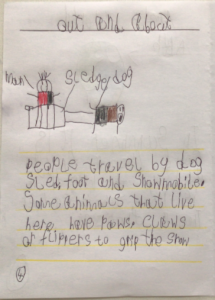 out and about
man
sledge
dog
people travel by dog
Sled, foot and Snowmobile.
Some animals that live
here have paws, claws
or flippers to grip the snow